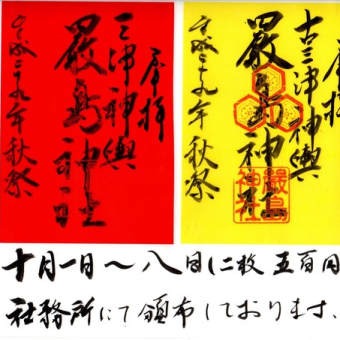 奉拝
三津神輿
厳島神社
平成二十九年秋祭
奉拝
古三津神輿
厳島神社
平成二十九年秋祭
厳島神社
十月一日～八日(二枚 五百円
社務所にて頒布しております、